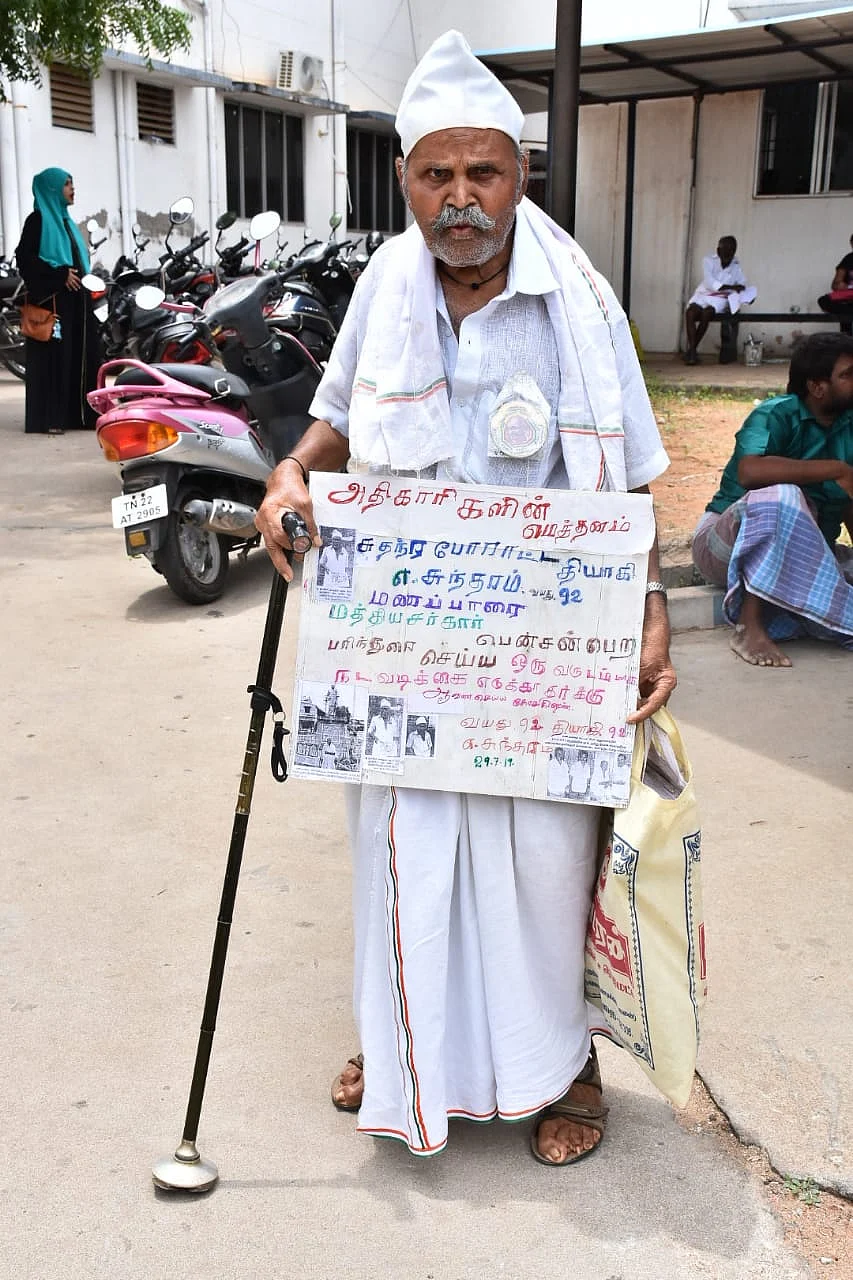 அதிகாரிகளின்
மெத்தனம்
சுதந்ர போராட்ட தியாகி
எ.சுந்தரம். வயது 92
மணப்பாரை
மத்தியசர்கார்
பரிந்துரை பென்சன் பெற
செய்ய ஒரு வருடம்
நடவடிக்கை எடுக்கா தர்க்கு
வயது 92 தியாகி 92
எ.சுந்தரம்
29.7.19.
TN 22
AT 2905
Scooty